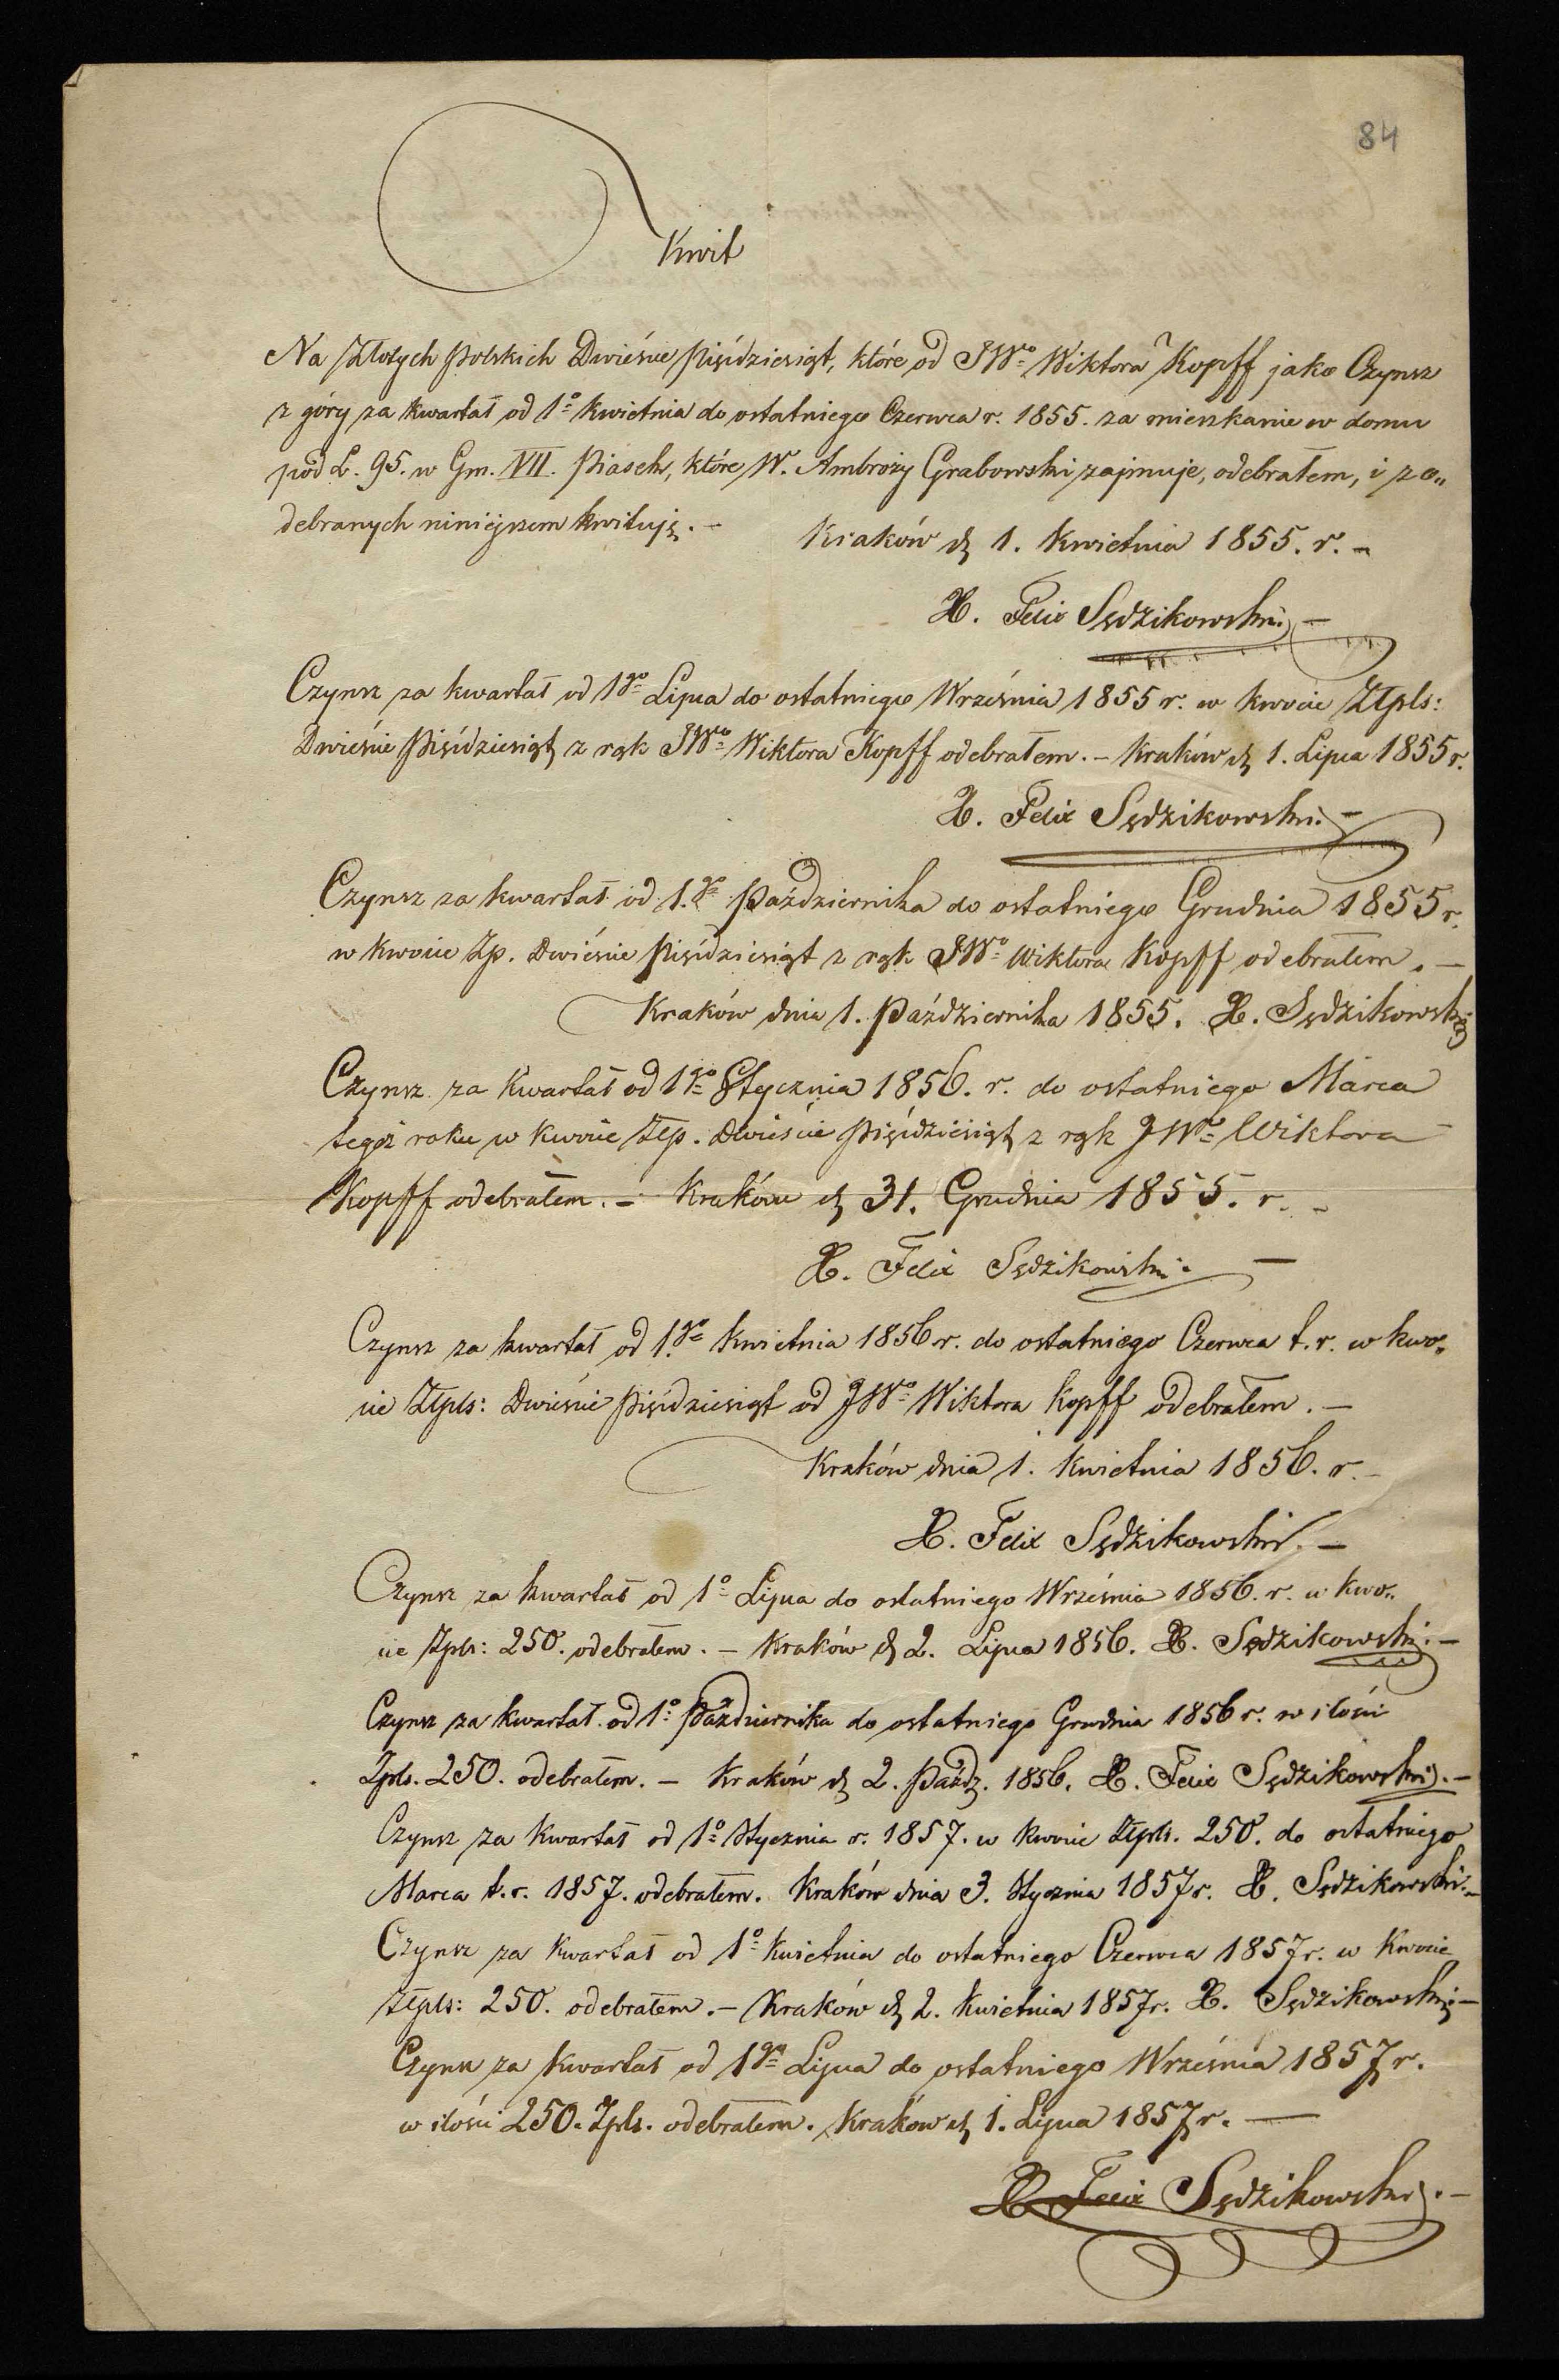 84
Kwit
Na Złotych Polskich Dwieście Pięćdziesiąt, które od JWo Wiktora Kopff jako Czynsz
z góry za kwartał od 1o Kwietnia do ostatniego Czerwca r. 1855. za mieszkanie w domu
pod L. 95. w Gm. VII. Piasek, które W. Ambroży Grabowski zajmuje, odebrałem, i z o„
debranych niniejszem kwituję. –
Kraków d. 1. Kwietnia 1855. r. –
X. Felix Sędzikowski –
Czynsz za kwartał od 1go Lipca do ostatniego Września 1855 r. w kwocie Złpls:
Dwieście Pięćdziesiąt z rąk JWo Wiktora Kopff odebrałem. – Kraków d. 1. Lipca 1855 r.
X. Felix Sędzikowski –
Czynsz za kwartał od 1.go Października do ostatniego Grudnia 1855 r.
w kwocie Zp. Dwieście Pięćdziesiąt z rąk JWo Wiktora Kopff odebrałem. –
Kraków dnia 1. Października 1855. X. Sędzikowski
Czynsz za kwartał od 1go Stycznia 1856. r. do ostatniego Marca
tegoż roku w kwocie Złp. Dwieście Pięćdziesiąt z rąk JWo Wiktora
Kopff odebrałem. – Kraków d. 31. Grudnia 1855. r. –
X. Felix Sędzikowski –
Czynsz za kwartał od 1.go Kwietnia 1856 r. do ostatniego Czerwca t. r. w kwo„
cie Złpls: Dwieście Pięćdziesiąt od JWo Wiktora Kopff odebrałem. –
Kraków dnia 1. Kwietnia 1856. r. –
X. Felix Sędzikowski. –
Czynsz za kwartał od 1o Lipca do ostatniego Września 1856. r. w kwo„
cie Zpls: 250. odebrałem. – Kraków d. 2. Lipca 1856. X. Sędzikowski. –
Czynsz za kwartał od 1o Października do ostatniego Grudnia 1856 r. w ilości
Zpls. 250. odebrałem. – Kraków d. 2. Paźdz. 1856. X. Felix Sędzikowski. –
Czynsz za kwartał od 1o Stycznia r. 1857. w kwocie Złpls. 250. do ostatniego
Marca t. r. 1857. odebrałem. Kraków dnia 3. Stycznia 1857 r. X. Sędzikowski. –
Czynsz za kwartał od 1o Kwietnia do ostatniego Czerwca 1857 r. w kwocie
Złpls: 250. odebrałem. – Kraków d. 2. Kwietnia 1857 r. X. Sędzikowski –
Czynsz za kwartał od 1go Lipca do ostatniego Września 1857 r.
w ilości 250. Zpls. odebrałem. Kraków d. 1. Lipca 1857 r. –
X. Felix Sędzikowski. –